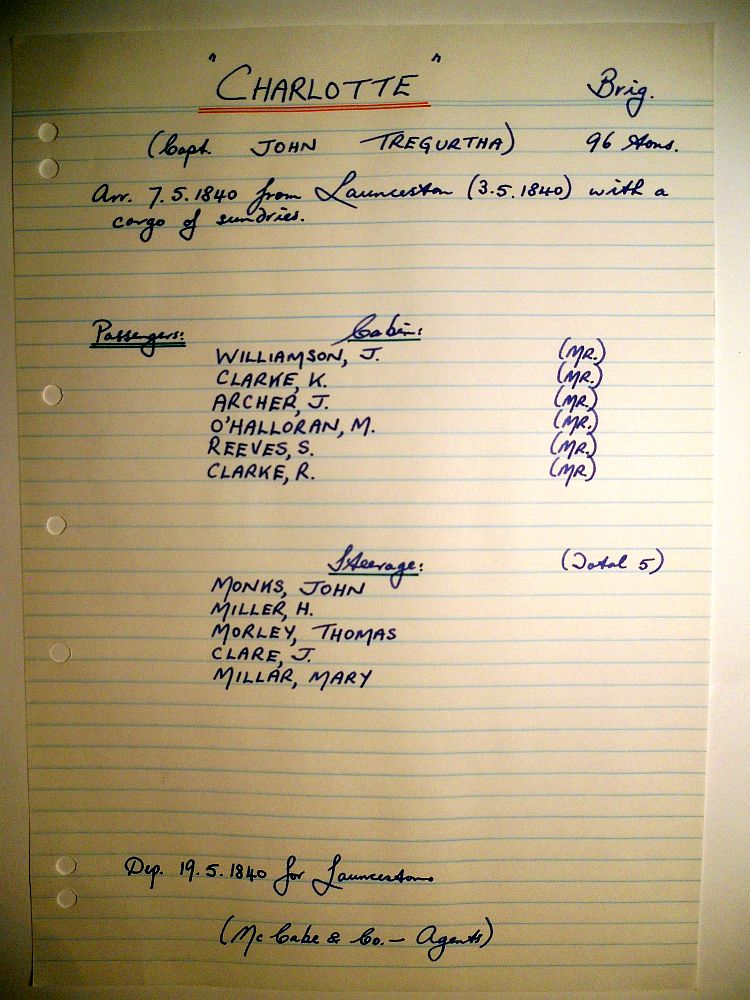 "CHARLOTTE" Brig.
(Capt. JOHN TREGURTHA) 96 tons.
Arr. 7.5.1840 from Launceston (3.5.1840) with a
cargo of sundries.
Passengers: Cabin:
WILLIAMSON, J. (MR.)
CLARKE, K. (MR.)
ARCHER, J. (MR.)
O'HALLORAN, M. (MR.)
REEVES, S. (MR.)
CLARKE, R. (MR.)
Steerage: (Total 5)
MONKS, JOHN
MILLER, H.
MORLEY, THOMAS
CLARE, J.
MILLAR, MARY
Dep. 19.5.1840 for Launceston.
(McCabe & Co. - Agents)